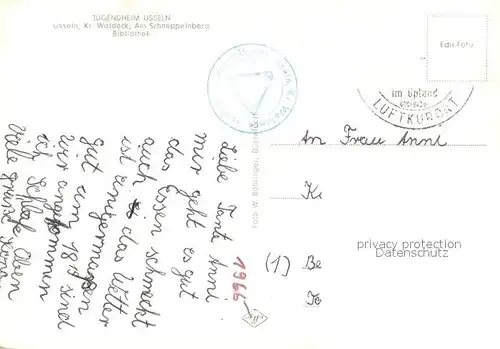 JUGENDHEIM USSELN
Usseln, Kr. Waldeck, Am Schneppelnberg
Bibliothek
Edit.Foto
im Upland
LUFTKURORT
An Frau Anni
K
privacy protection
Datenschutz
(1) Be
To
Foto W. Düsseldorf
1966
Liebe Tante Anni
mir geht es gut
das Essen schmeckt
auch das Wetter
ist einigermaßen
gut um 18 sind
wir angekommen
ich schlafe Oben
viele grüße